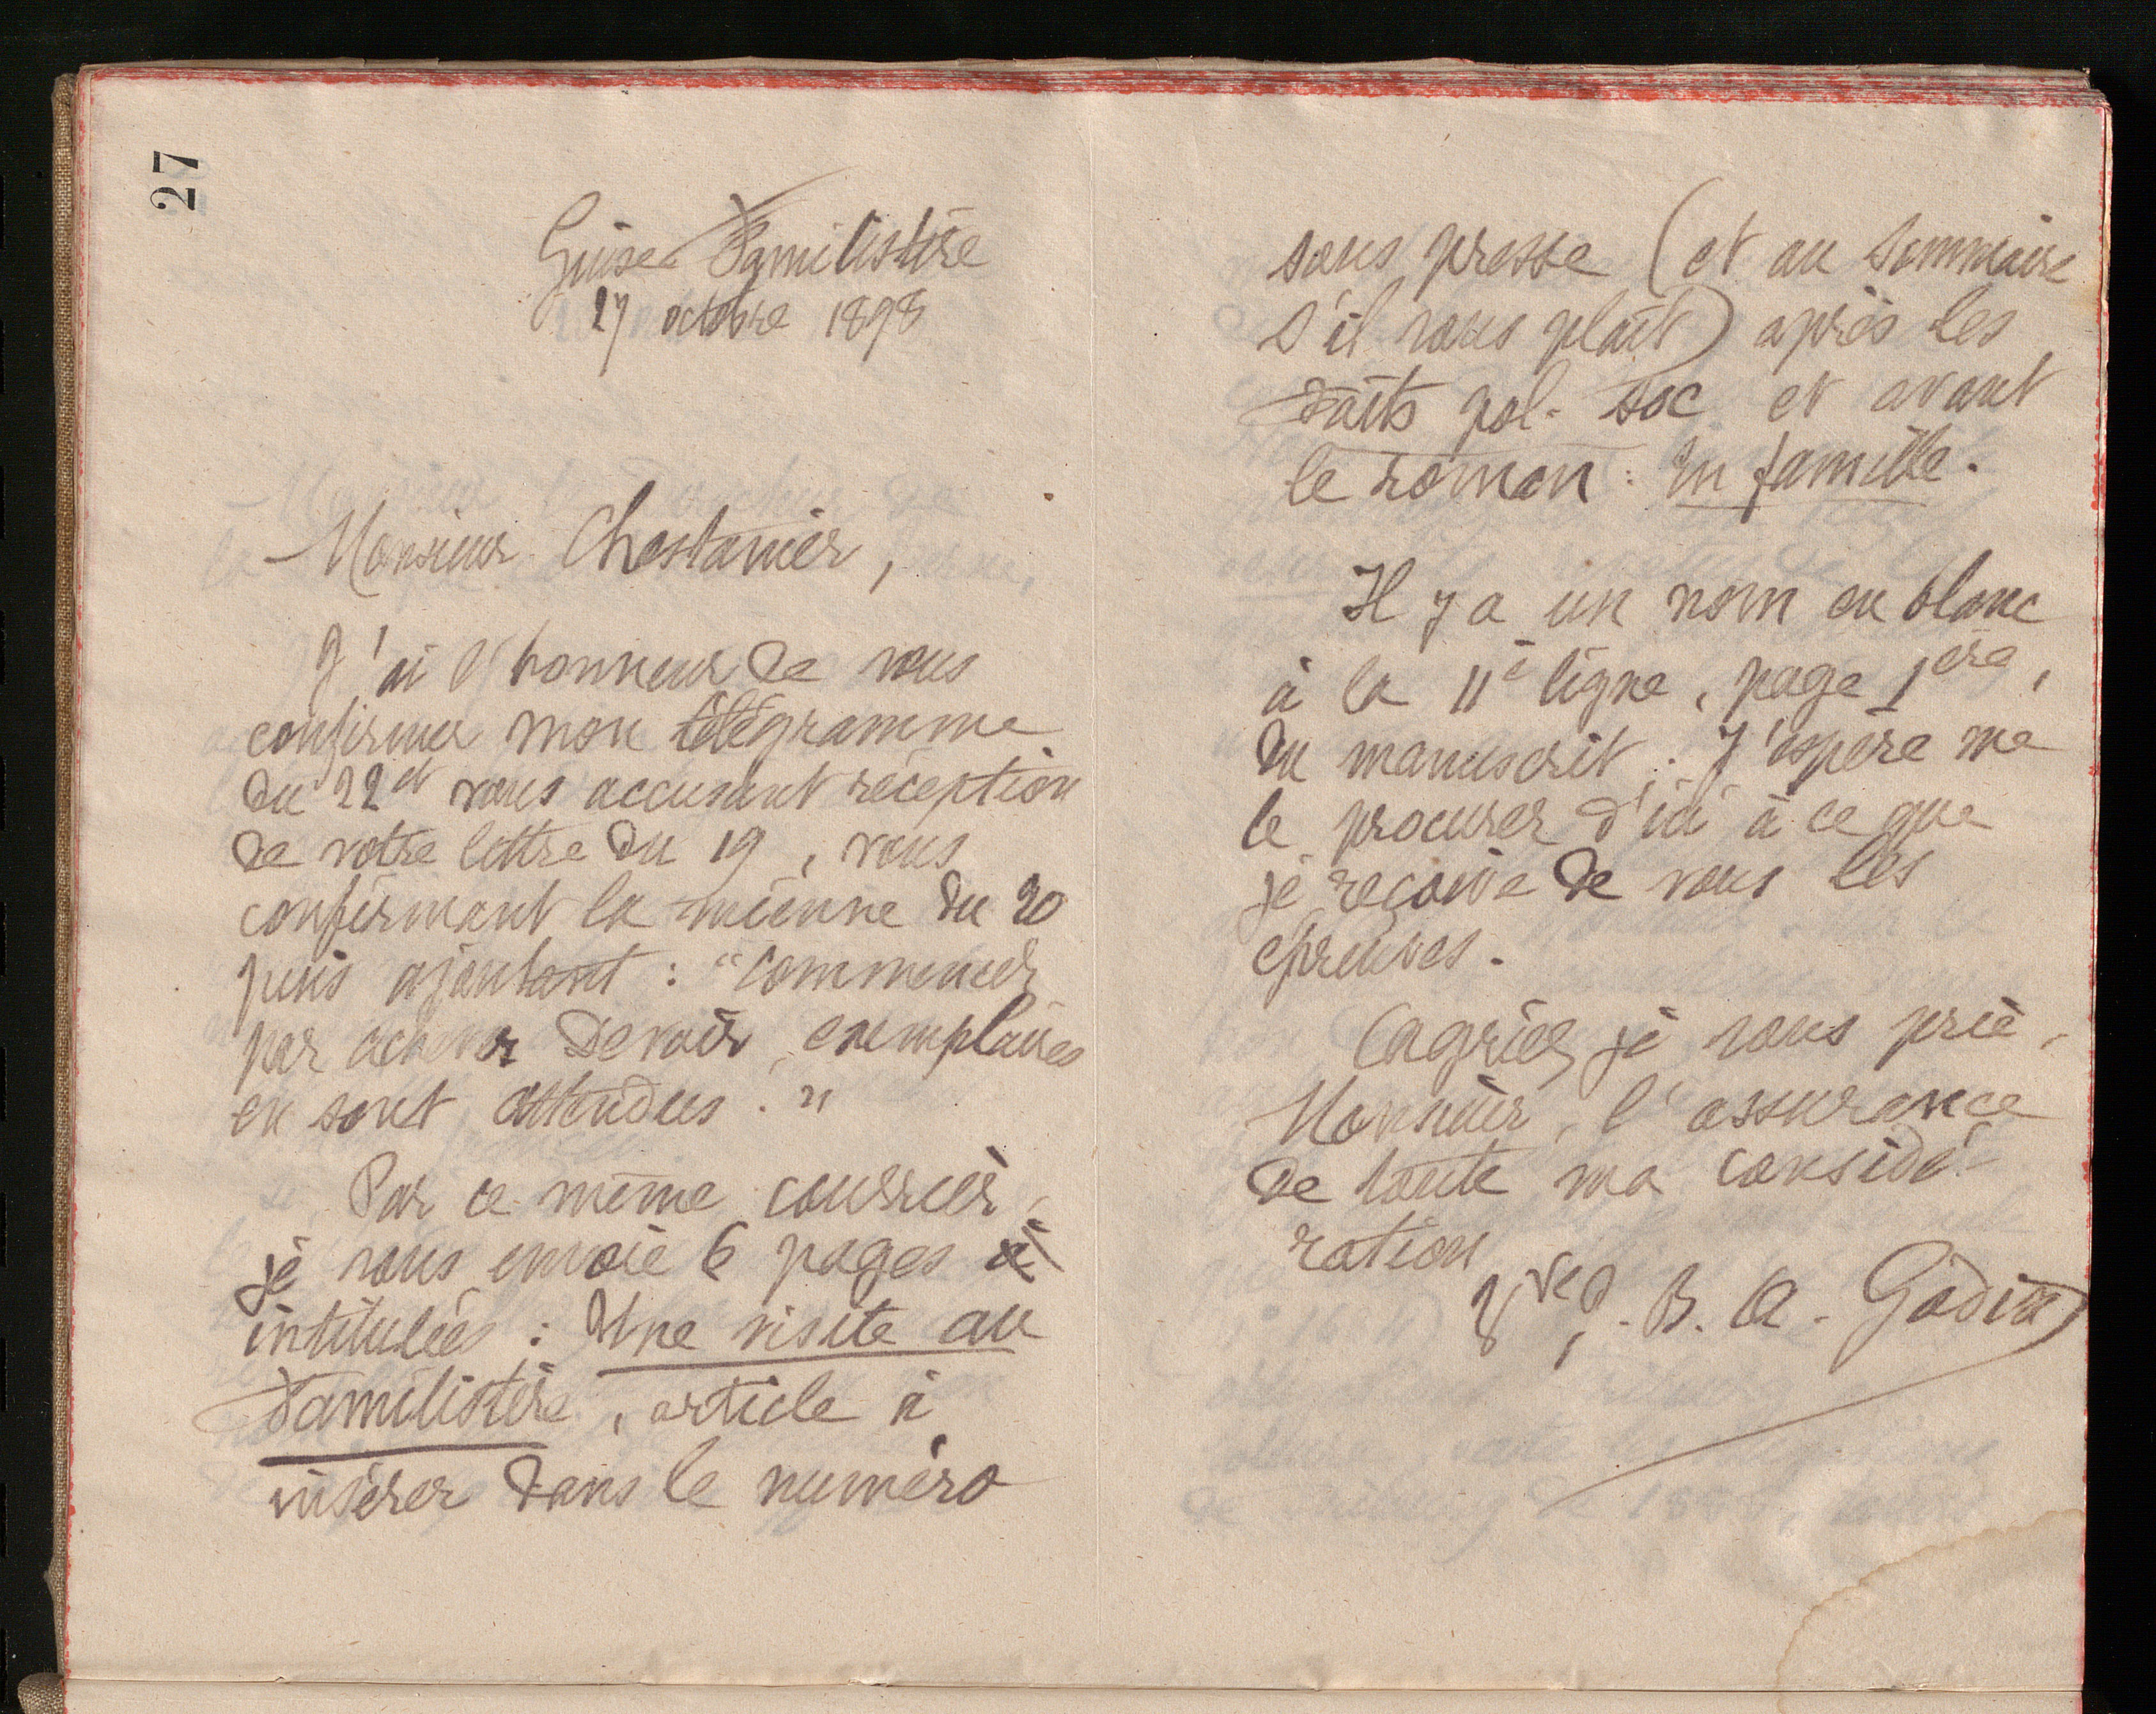 27
Guise Familistère
27 octobre 1898
Monsieur Chastanier,
J'ai l'honneur de vous
confirmer mon télégramme
du 22 ct vous accusant réception
de votre lettre du 19, vous
confirmant la mienne du 20
puis ajoutant : "commencez
par achever Devoir, exemplaires
en sont attendus."
Par ce même courrier,
je vous envoie 6 pages
intitulées : Une visite au
Familistère, article à
insérer dans le numéro
sous presse (et au sommaire
s'il vous plaît) après les
Faits pol. soc et avant
le roman : En famille.
Il y a un nom en blanc
à la 11e ligne, page 1ère,
du manuscrit ; J'espère me
le procurer d'ici à ce que
je reçoive de vous les
épreuves.
Agréez je vous prie,
Monsieur, l'assurance
de toute ma considé-
ration
Vve J. B. A. Godin